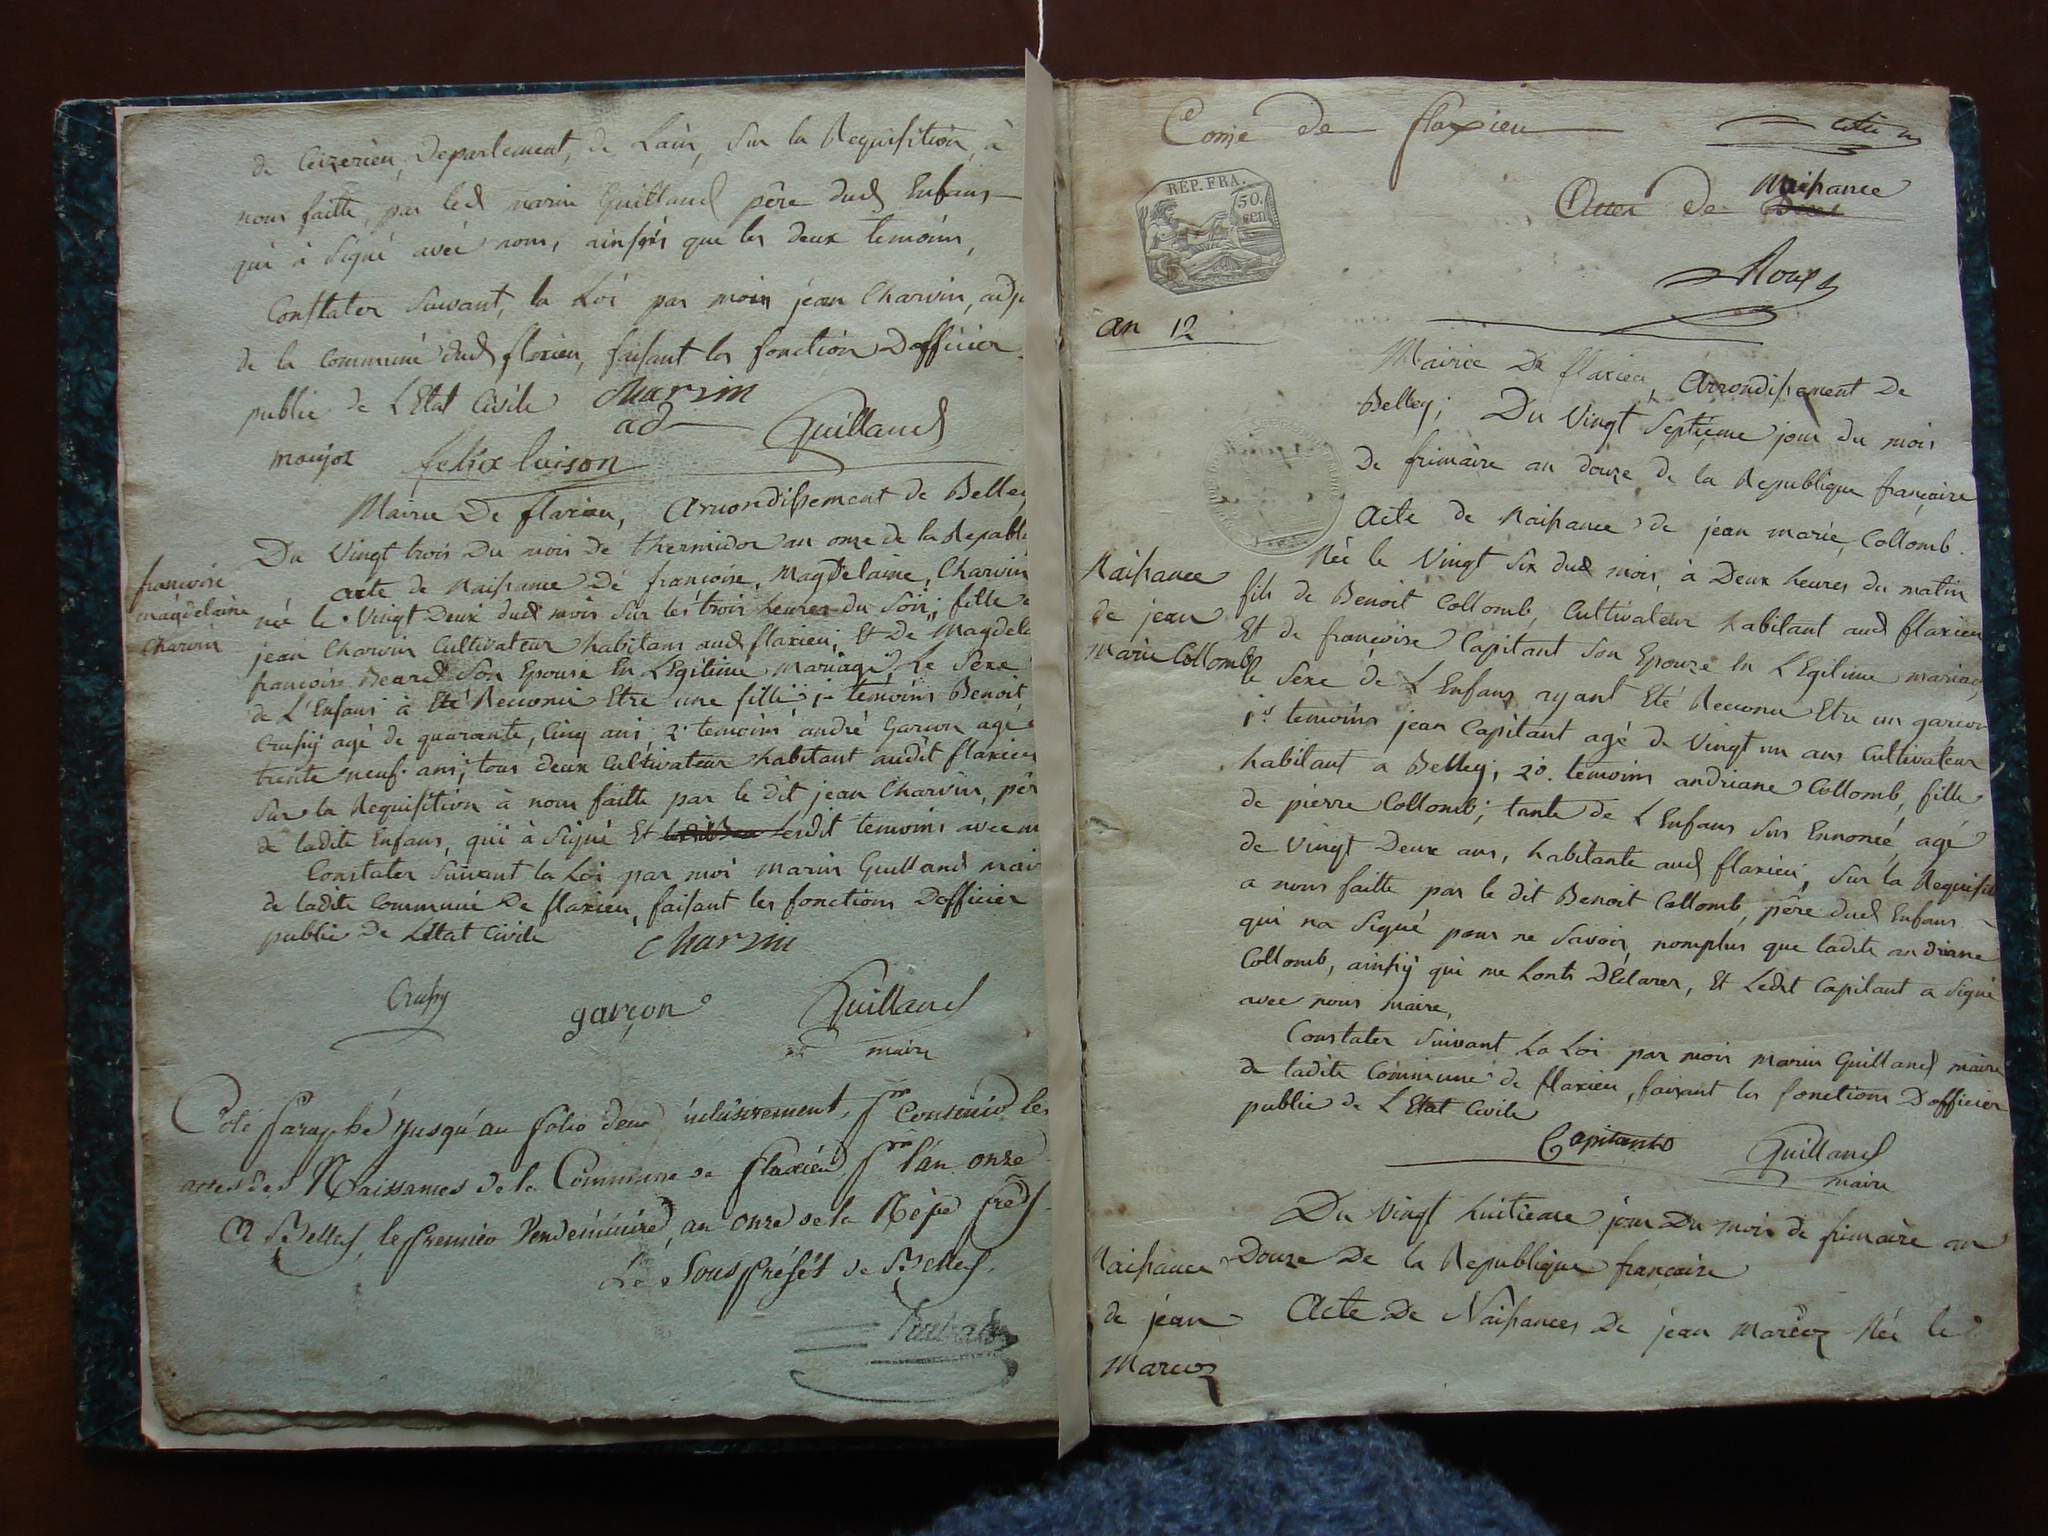 de Ceizerieu, Departement, de Lain, sur la Requisition, à
nous faitte, par led marin Guilland père dud Enfans
qui à signé avec nous, ainsi que les deux temoins,
Constater suivant, la Loi par moi jean Charvin, adj
de la commune dud flaxieu, faisant les fonction Dofficier
public de L'Etat Civile Charvin
ad
Guilland
maujot felix luison
Mairie De flaxieu, Arrondissement de Belley
Du Vingt trois Du mois de thermidor an onze de la Republ
acte de Naissance de françoise, Magdelaine, Charvin
françoise
magdelaine
Charvin
née le Vingt Deux dud mois sur les trois heures du soir; fille
jean Charvin Cultivateur habitans aud flaxieu; Et De Magdel
françoise Beard son Epouse En LEgitime mariage, Le Sexe
de L'Enfans à Eté Reconnu Etre une fille; 1r temoins Benoit
Crussy agé de quarante, Cinq ans, 2e temoins andré Garçon agé
trente neuf ans; tous deux Cultivateur habitant audit flaxieu
sur la Requisition à nous faitte par le dit jean Charvin, pèr
de ladite Enfans, qui à signé Et Lesdit temoins avec n
Constater suivant la Loi par moi marin Guilland mair
de ladite Commune De flaxieu, faisant les fonctions Dofficier
public De LEtat Civile Charvin
Crussy garçon Guilland
maire
Coté Paraphé jusqu'au folio deux inclusivement, pr Contenir les
actes des Naissances de la Commune de flaxieu pr l'an onze
A Belley, le Premier Vendémiaire, an onze de la Répe
Le Sous Préfet de Belley.
Come de flaxieu
Actes de Naissance
Roux
REP. FRA.
50.
cen
an 12
Mairie De flaxieu, Arrondissement De
Belley; Du Vingt Septieme jour du mois
De frimaire an douze de la Republique française
Acte de Naissance de jean marie, Collomb.
Naissance
de jean
Marie Collomb
Née le Vingt Six dud mois, à Deux heures du matin
fils de Benoit Collomb, Cultivateur habitant aud flaxieu
Et de françoise Capitant son Epouze En LEgitime mariag
le Sexe de L'Enfans ayant Eté Reconnu Etre un garçon
1r temoins jean Capitant agé de Vingt un ans Cultivateur
habitant a Belley; 2e. temoins andriane Collomb, fille
de pierre Collomb; tante de L'Enfans sus Ennoncé, agé
de Vingt Deux ans, habitante aud flaxieu, sur la Requisit
a nous faitte par le dit Benoit Collomb, père dud Enfans
qui na signé pour ne savoir, nomplus que ladite andriane
Collomb, ainssy qui me Lonts DEclarer, Et Ledit Capitant a signé
avec nous maire,
Constater suivant La Loi par moi marin Guilland maire
de ladite Commune de flaxieu, faisant les fonctions Dofficier
public de L'Etat Civile
Capitant Guilland
maire
Du Vingt huitieme jour Du mois de frimaire an
Douze De la Republique française
Naissance
de jean
Marcoz
Acte De Naissances De jean Marcoz Née le